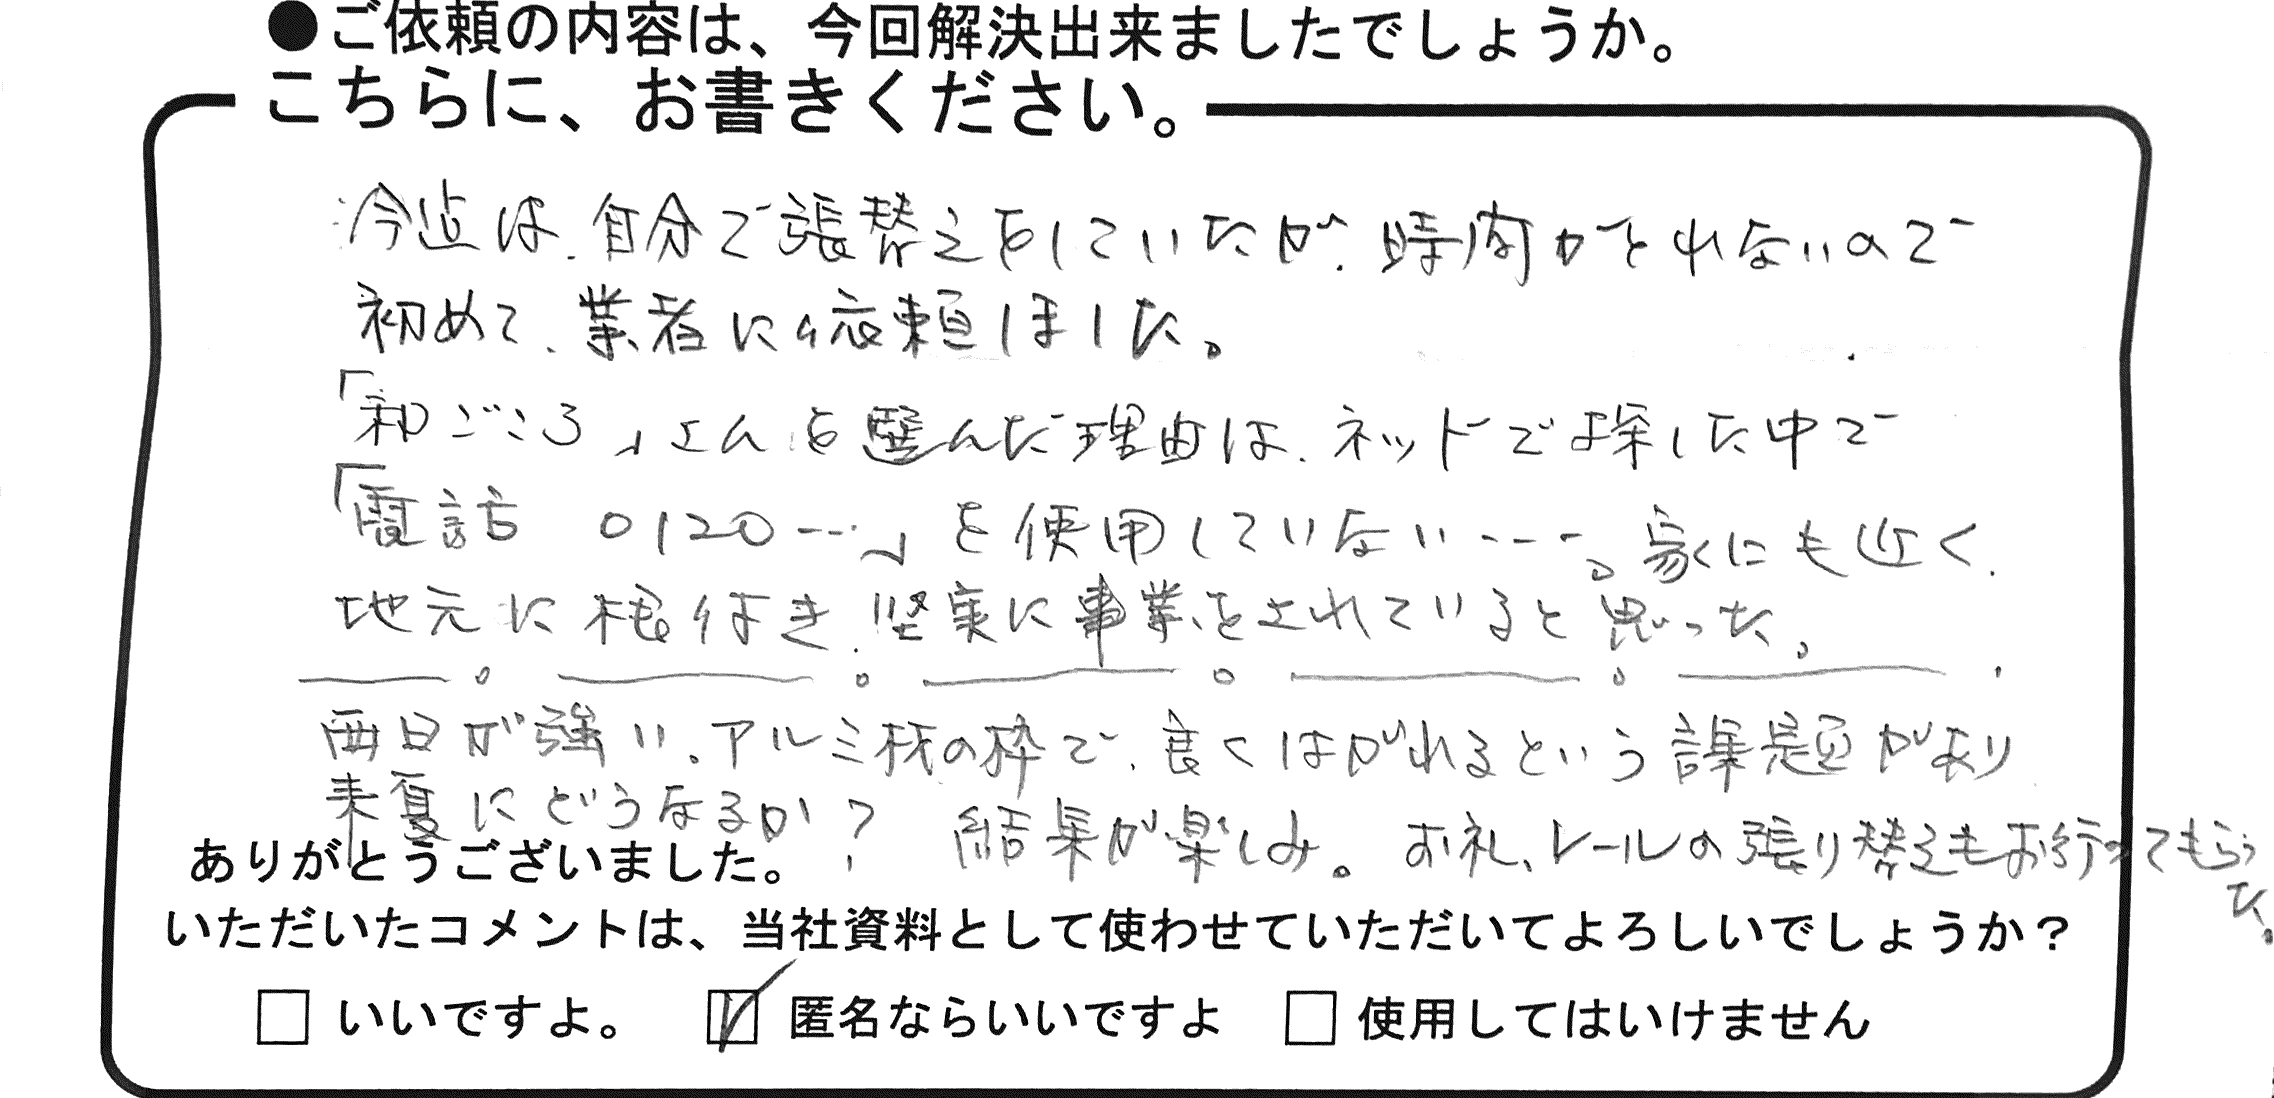 ●ご依頼の内容は、今回解決出来ましたでしょうか。
こちらに、お書きください。
今迄は、自分で張替えをしていたが、時間がとれないので
初めて、業者に依頼しました。
「和ごころ」さんを選んだ理由は、ネットで探した中で
「電話 0120…」を使用していない---。家にも近く、
地元に根付き、堅実に事業をされていると思った。
西日が強い、アルミ材の枠で、良くはがれるという課題があり
来夏にどうなるか? 結果が楽しみ。お礼、レールの張り替えもお行ってもらった。
ありがとうございました。
いただいたコメントは、当社資料として使わせていただいてよろしいでしょうか？
□ いいですよ。 ☑ 匿名ならいいですよ □ 使用してはいけません